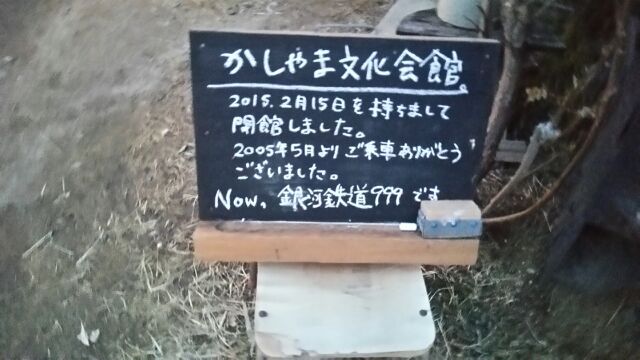 かしやま文化会館。
2015.2月15日を持ちまして
閉館しました。
2005年5月よりご乗車ありがとう
ございました。
Now, 銀河鉄道999です